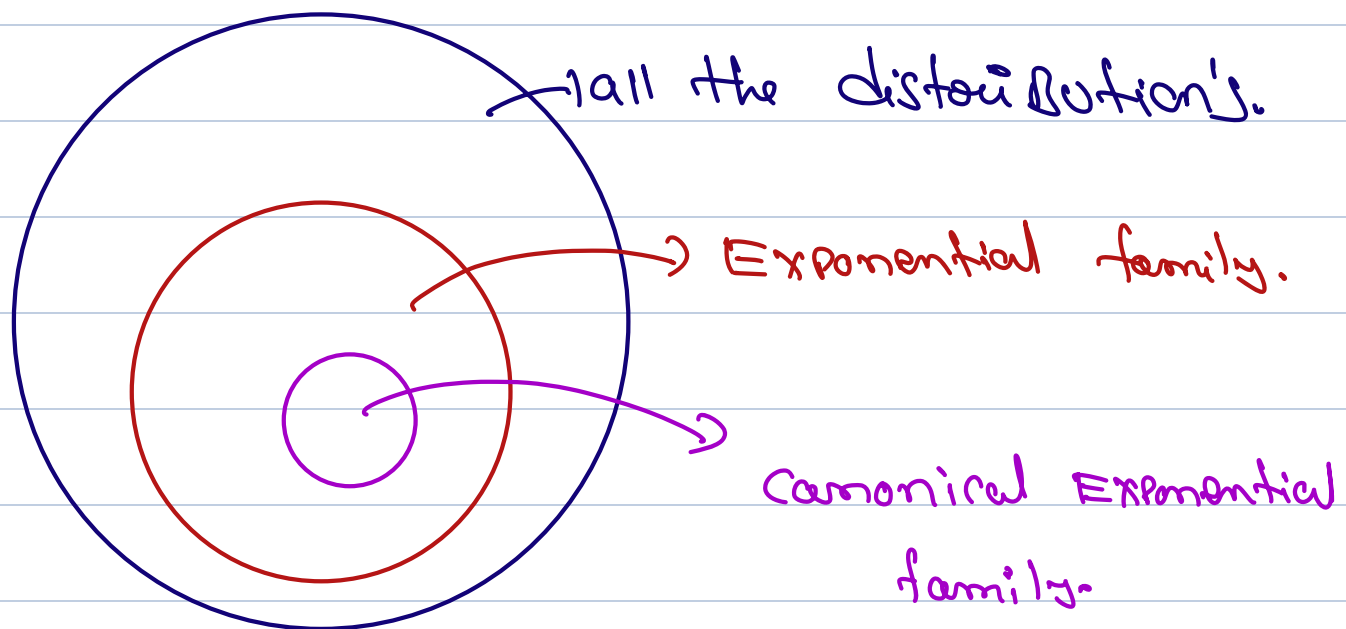 all the distributions.
Exponential family.
Canonical Exponential
family.